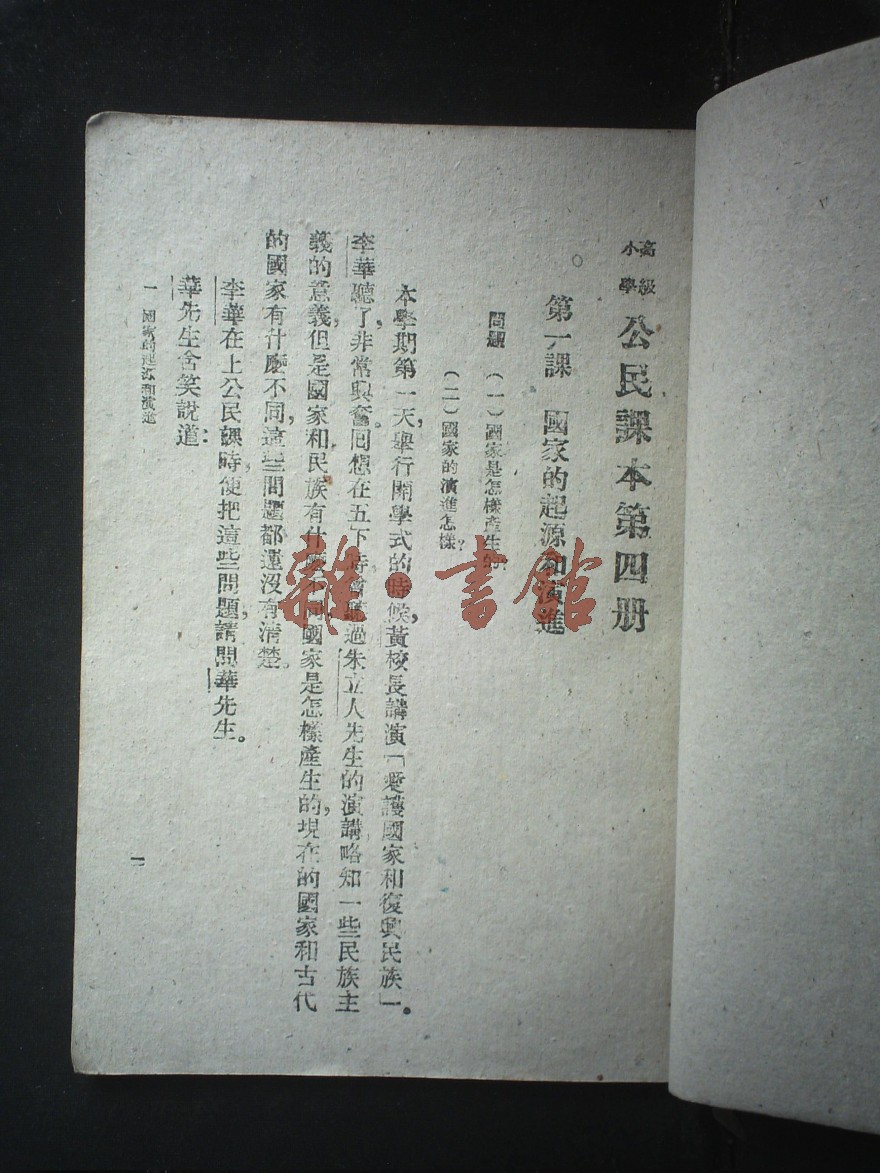 高級
小學
公民課本第四册
第一課 國家的起源和演進
問題 (一)國家是怎樣產生的
(二)國家的演進怎樣?
本學期第一天,舉行開學式的時候,黃校長講演「愛護國家和復興民族」。
李華聽了,非常興奮。回想在五下時,曾聽過朱立人先生的演講,略知一些民族主
義的意義,但是國家和民族有什麼不同,國家是怎樣產生的,現在的國家和古代
的國家有什麼不同,這些問題都還沒有清楚。
李華在上公民課時,便把這些問題,請問華先生。
華先生含笑說道:
一 國家的起源和演進
一
雜·書館